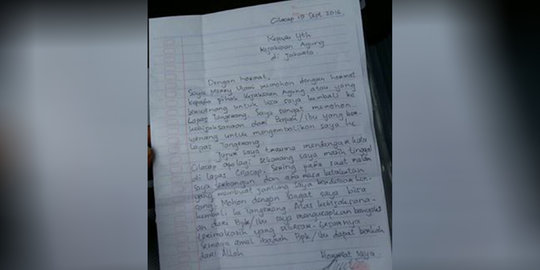 Cilacap 10 Sept 2016
Kepada Yth
Kejaksaan Agung
di Jakarta
Dengan hormat,
Saya Merry Utami memohon dengan hormat
kepada pihak Kejaksaan Agung atau yang
berwenang untuk bisa saya kembali ke
Lapas Tangerang. Saya sangat memohon
kebijaksanaan dari Bapak/ibu yang ber
wenang untuk mengembalikan saya ke
Lapas Tangerang.
Jujur saya trauma mendengar kata
Cilacap apalagi sekarang saya masih tinggal
di lapas Cilacap. Sering pada saat malam
saya terbangun dan
yang membuat jantung saya berdebar ken
cang. Mohon dengan sangat saya bisa
kembali ke Tangerang. Atas kebijaksana-
an dari Bpk/ibu saya mengucapkan banyak
terimakasih yang
amal ibadah Bpk/ibu dapat
dari Allah
Hormat saya